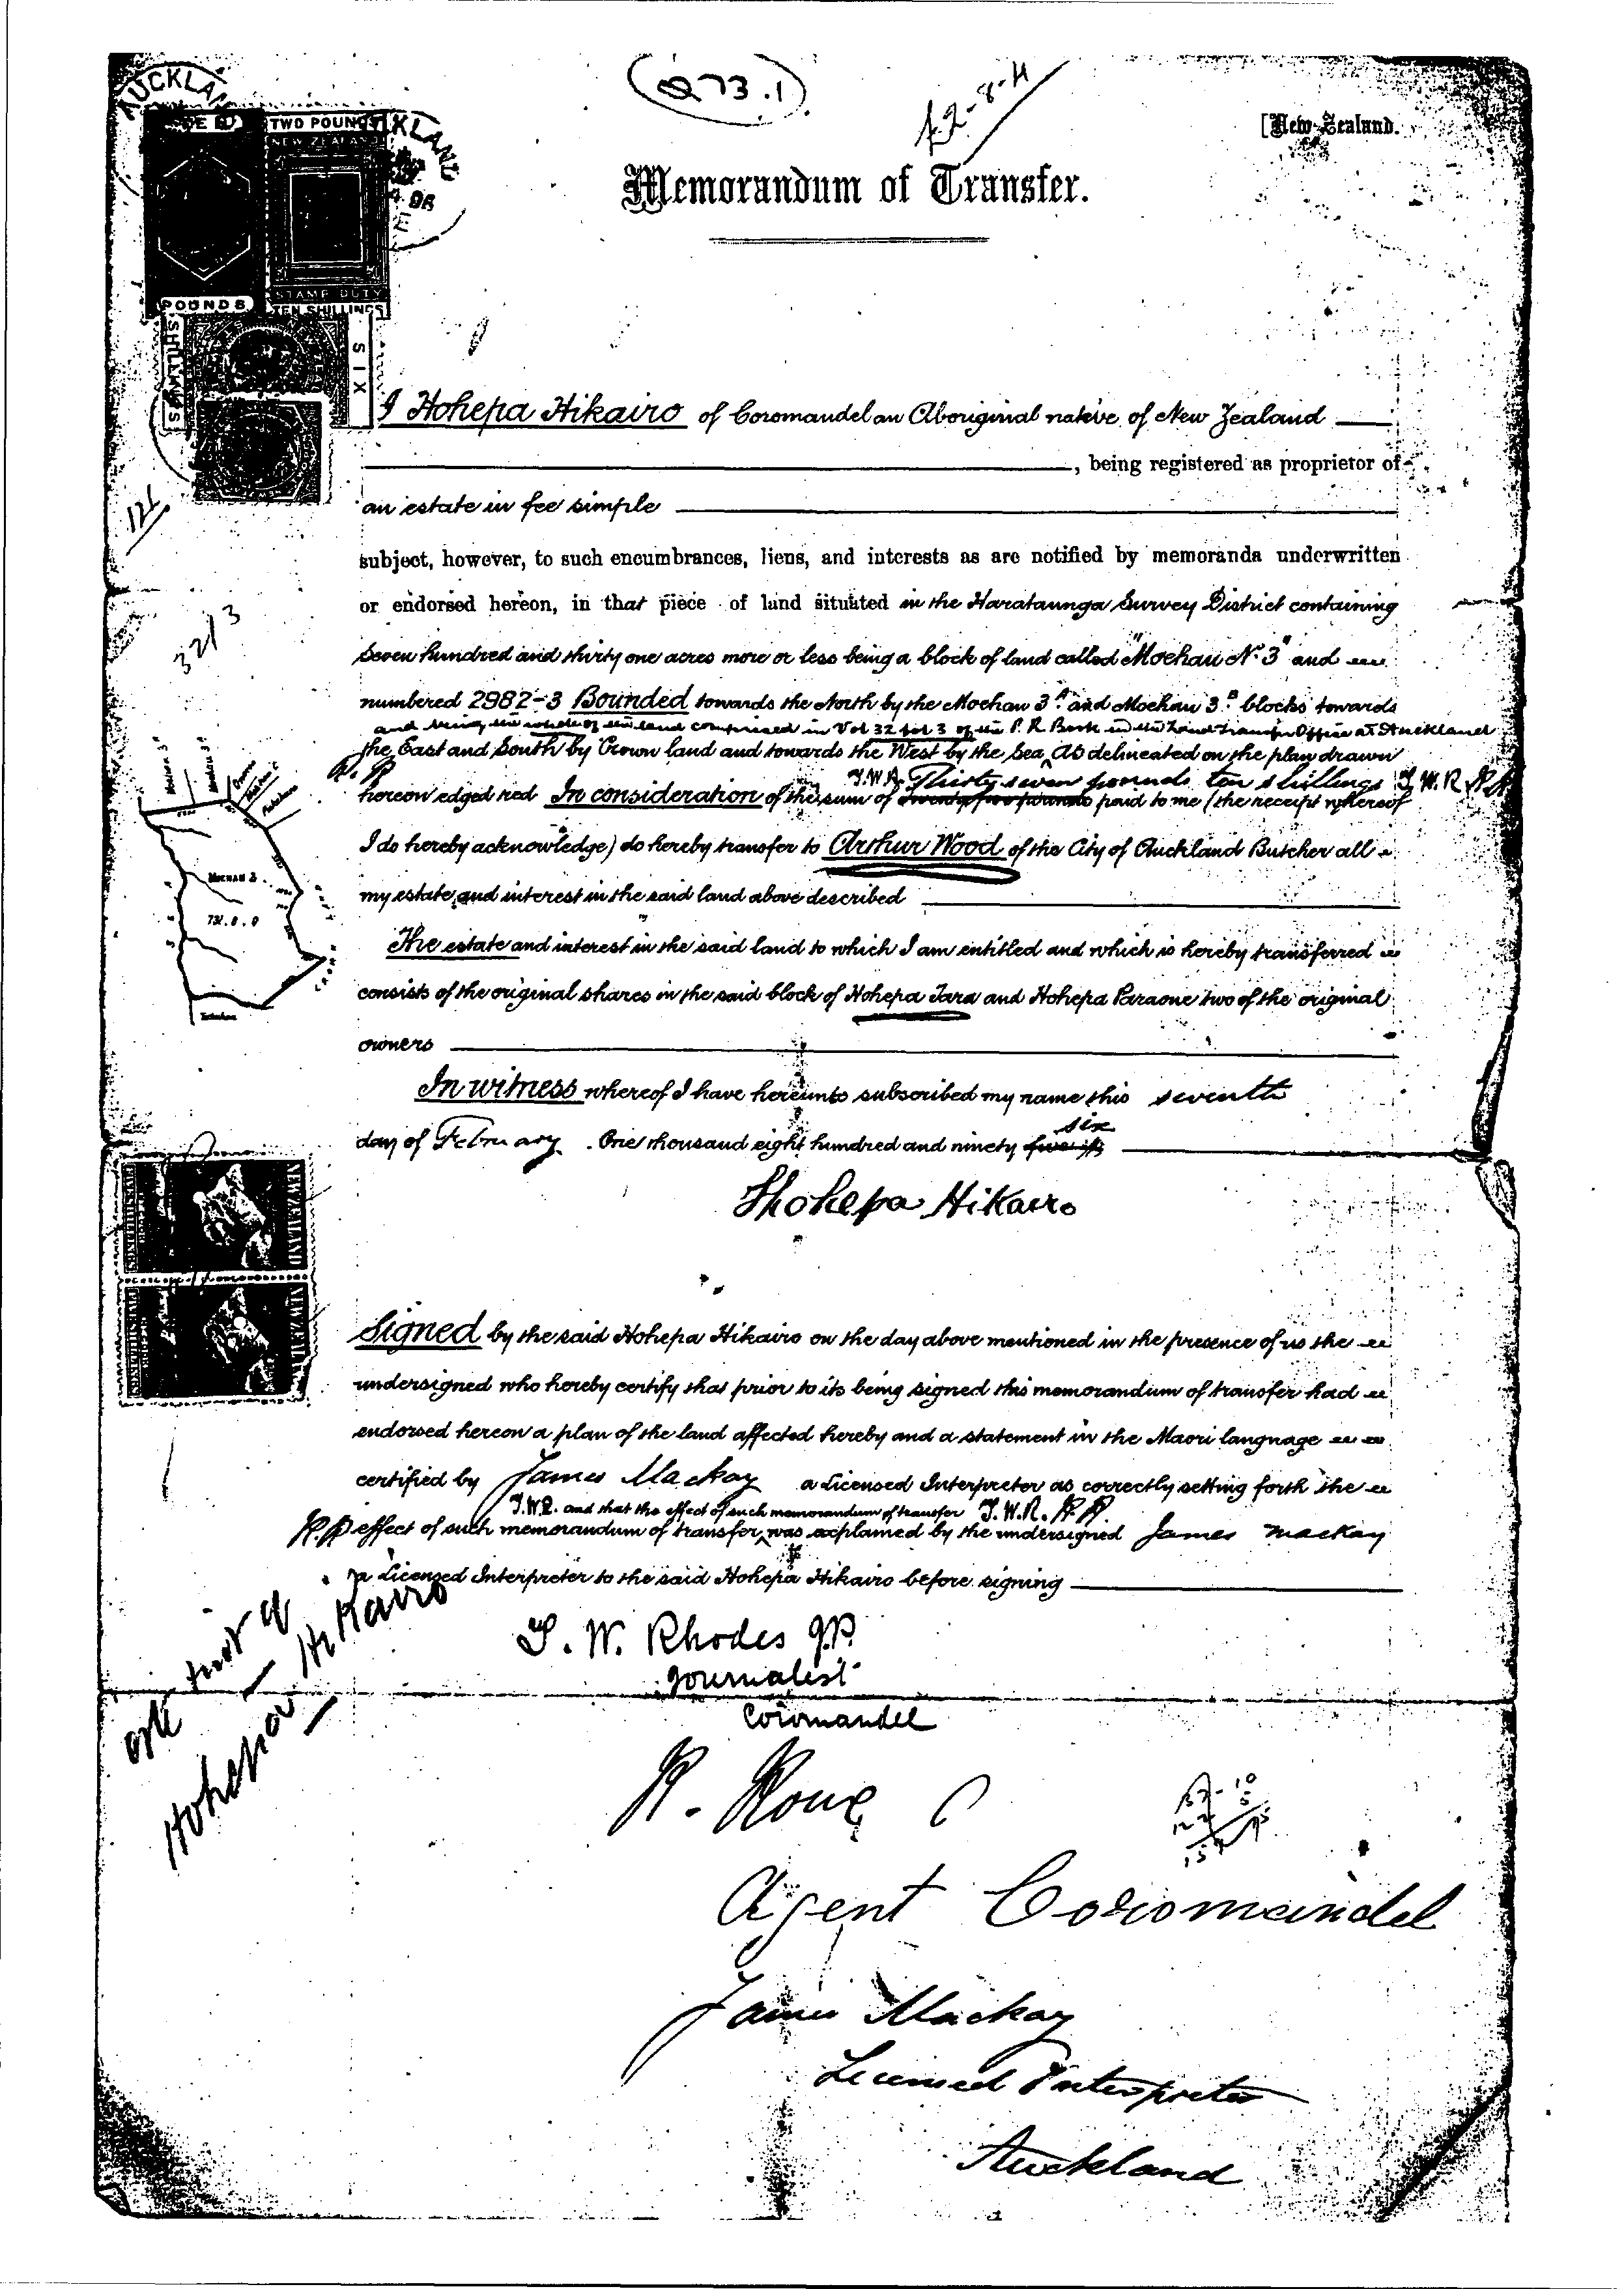 AUCKLAN
(273.1)
[New Zealand.
TWO POUNDS
KLAND
NEW ZEALAND
98
Memorandum of Transfer.
POUNDS
STAMP DUTY
TEN SHILLINGS
SIX
I Hohepa Hikairo of Coromandel an Aboriginal native of New Zealand
, being registered as proprietor of
an estate in fee simple
subject, however, to such encumbrances, liens, and interests as are notified by memoranda underwritten
or endorsed hereon, in that piece of land situated in the Harataunga Survey District containing
Seven hundred and thirty one acres more or less being a block of land called "Moehau No 3" and
numbered 2982-3 Bounded towards the North by the Moehau 3A and Moehau 3B blocks towards
and being the whole of the land comprised in Vol 32 fol 3 of the P. R. Book in the Land Transfer Office at Auckland
the East and South by Crown land and towards the West by the Sea As delineated on the plan drawn
R. R
T.W.R. Thirty seven pounds ten shillings T.W.R R R
hereon edged red In consideration of the sum of paid to me (the receipt whereof
I do hereby acknowledge) do hereby transfer to Arthur Wood of the City of Auckland Butcher all
my estate and interest in the said land above described
Moehau 3
731.0.0
The estate and interest in the said land to which I am entitled and which is hereby transferred
consists of the original shares in the said block of Hohepa Tara and Hohepa Paraone two of the original
owners
In witness whereof I have hereunto subscribed my name this seventh
six
day of February. One thousand eight hundred and ninety
Hohepa Hikairo
NEW ZEALAND
NEW ZEALAND
Signed by the said Hohepa Hikairo on the day above mentioned in the presence of us the
undersigned who hereby certify that prior to its being signed this memorandum of transfer had
endorsed hereon a plan of the land affected hereby and a statement in the Maori language
certified by James Mackay a Licensed Interpreter as correctly setting forth the
T.W.R. and that the effect of such memorandum of transfer T.W.R. R.R.
R.R effect of such memorandum of transfer was explained by the undersigned James Mackay
a Licensed Interpreter to the said Hohepa Hikairo before signing
Hohepa Hikairo
T. W. Rhodes J.P.
Journalist
Coromandel
Agent Coromandel
James Mackay
Licensed Interpreter
Auckland